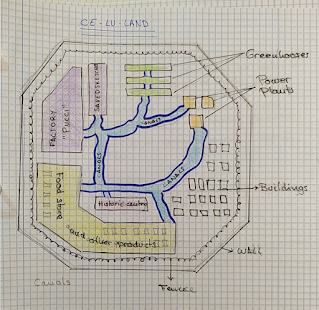 CE-LU-LAND
Greenhouses
Power
Plants
FACTORY
"Pucci"
CANALS
CANALS
CANALS
Buildings
Food store
and other products
Historic centre
WALL
Fences
Canals